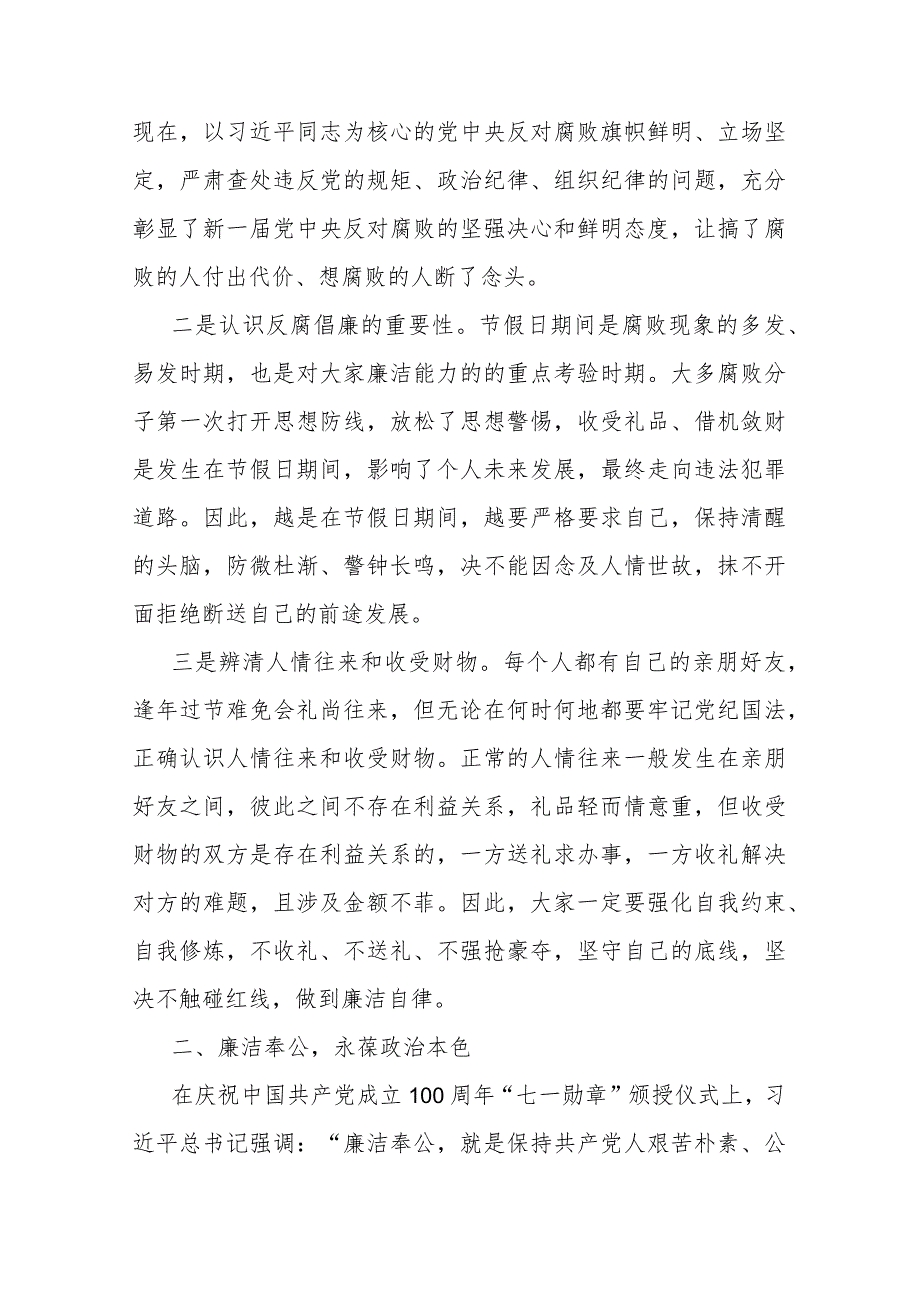 现在，以习近平同志为核心的党中央反对腐败旗帜鲜明、立场坚
定，严肃查处违反党的规矩、政治纪律、组织纪律的问题，充分
彰显了新一届党中央反对腐败的坚强决心和鲜明态度，让搞了腐
败的人付出代价、想腐败的人断了念头。
二是认识反腐倡廉的重要性。节假日期间是腐败现象的多发、
易发时期，也是对大家廉洁能力的的重点考验时期。大多腐败分
子第一次打开思想防线，放松了思想警惕，收受礼品、借机敛财
是发生在节假日期间，影响了个人未来发展，最终走向违法犯罪
道路。因此，越是在节假日期间，越要严格要求自己，保持清醒
的头脑，防微杜渐、警钟长鸣，决不能因念及人情世故，抹不开
面拒绝断送自己的前途发展。
三是辨清人情往来和收受财物。每个人都有自己的亲朋好友，
逢年过节难免会礼尚往来，但无论在何时何地都要牢记党纪国法，
正确认识人情往来和收受财物。正常的人情往来一般发生在亲朋
好友之间，彼此之间不存在利益关系，礼品轻而情意重，但收受
财物的双方是存在利益关系的，一方送礼求办事，一方收礼解决
对方的难题，且涉及金额不菲。因此，大家一定要强化自我约束、
自我修炼，不收礼、不送礼、不强抢豪夺，坚守自己的底线，坚
决不触碰红线，做到廉洁自律。
二、廉洁奉公，永葆政治本色
在庆祝中国共产党成立 100 周年“七一勋章”颁授仪式上，习
近平总书记强调：“廉洁奉公，就是保持共产党人艰苦朴素、公